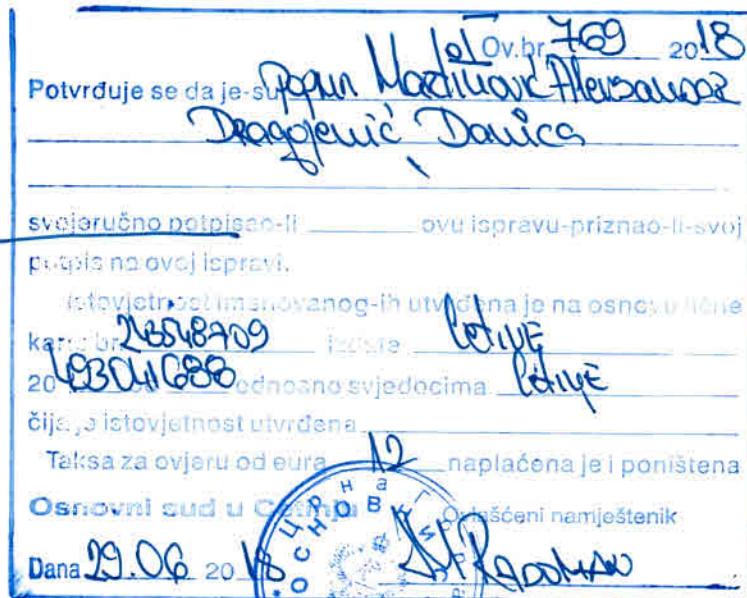 Ov.br. 769 2018
Potvrđuje se da je-su Popun Martinović Aleksandar
Dragojević Danica
svojeručno potpisao-li ovu ispravu-priznao-li-svoj
potpis na ovoj ispravi.
Istovjetnost imenovanog-ih utvrđena je na osnovu lične
karte br. 243548709 izdate Cetinje
20 493041688 odnosno svjedocima Cetinje
čija je istovjetnost utvrđena
Taksa za ovjeru od eura 12 naplaćena je i poništena
Osnovni sud u Cetinju Ovlašćeni namještenik
Dana 29.06 2018 Radoman
Црна
ОСНОВНИ